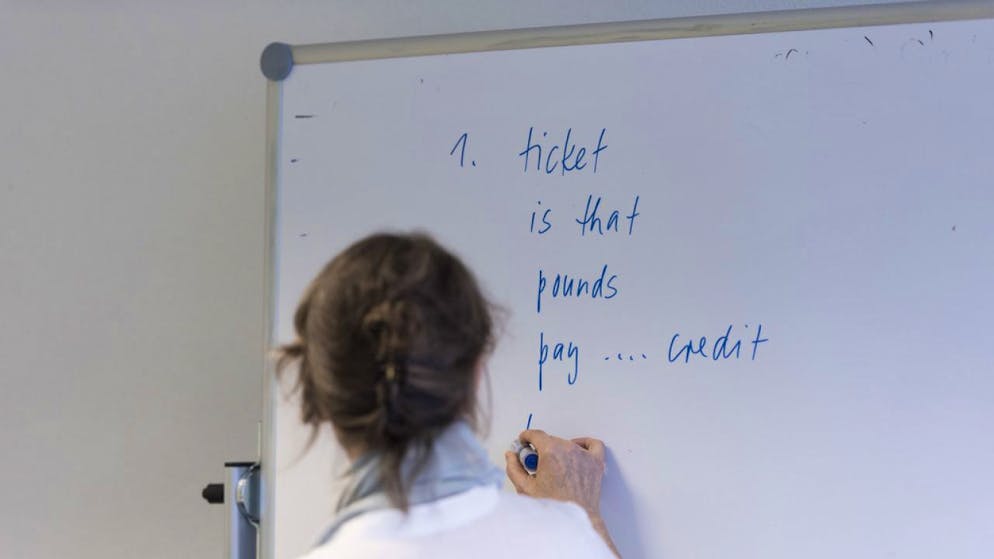 1. ticket
is that
pounds
pay .... credit